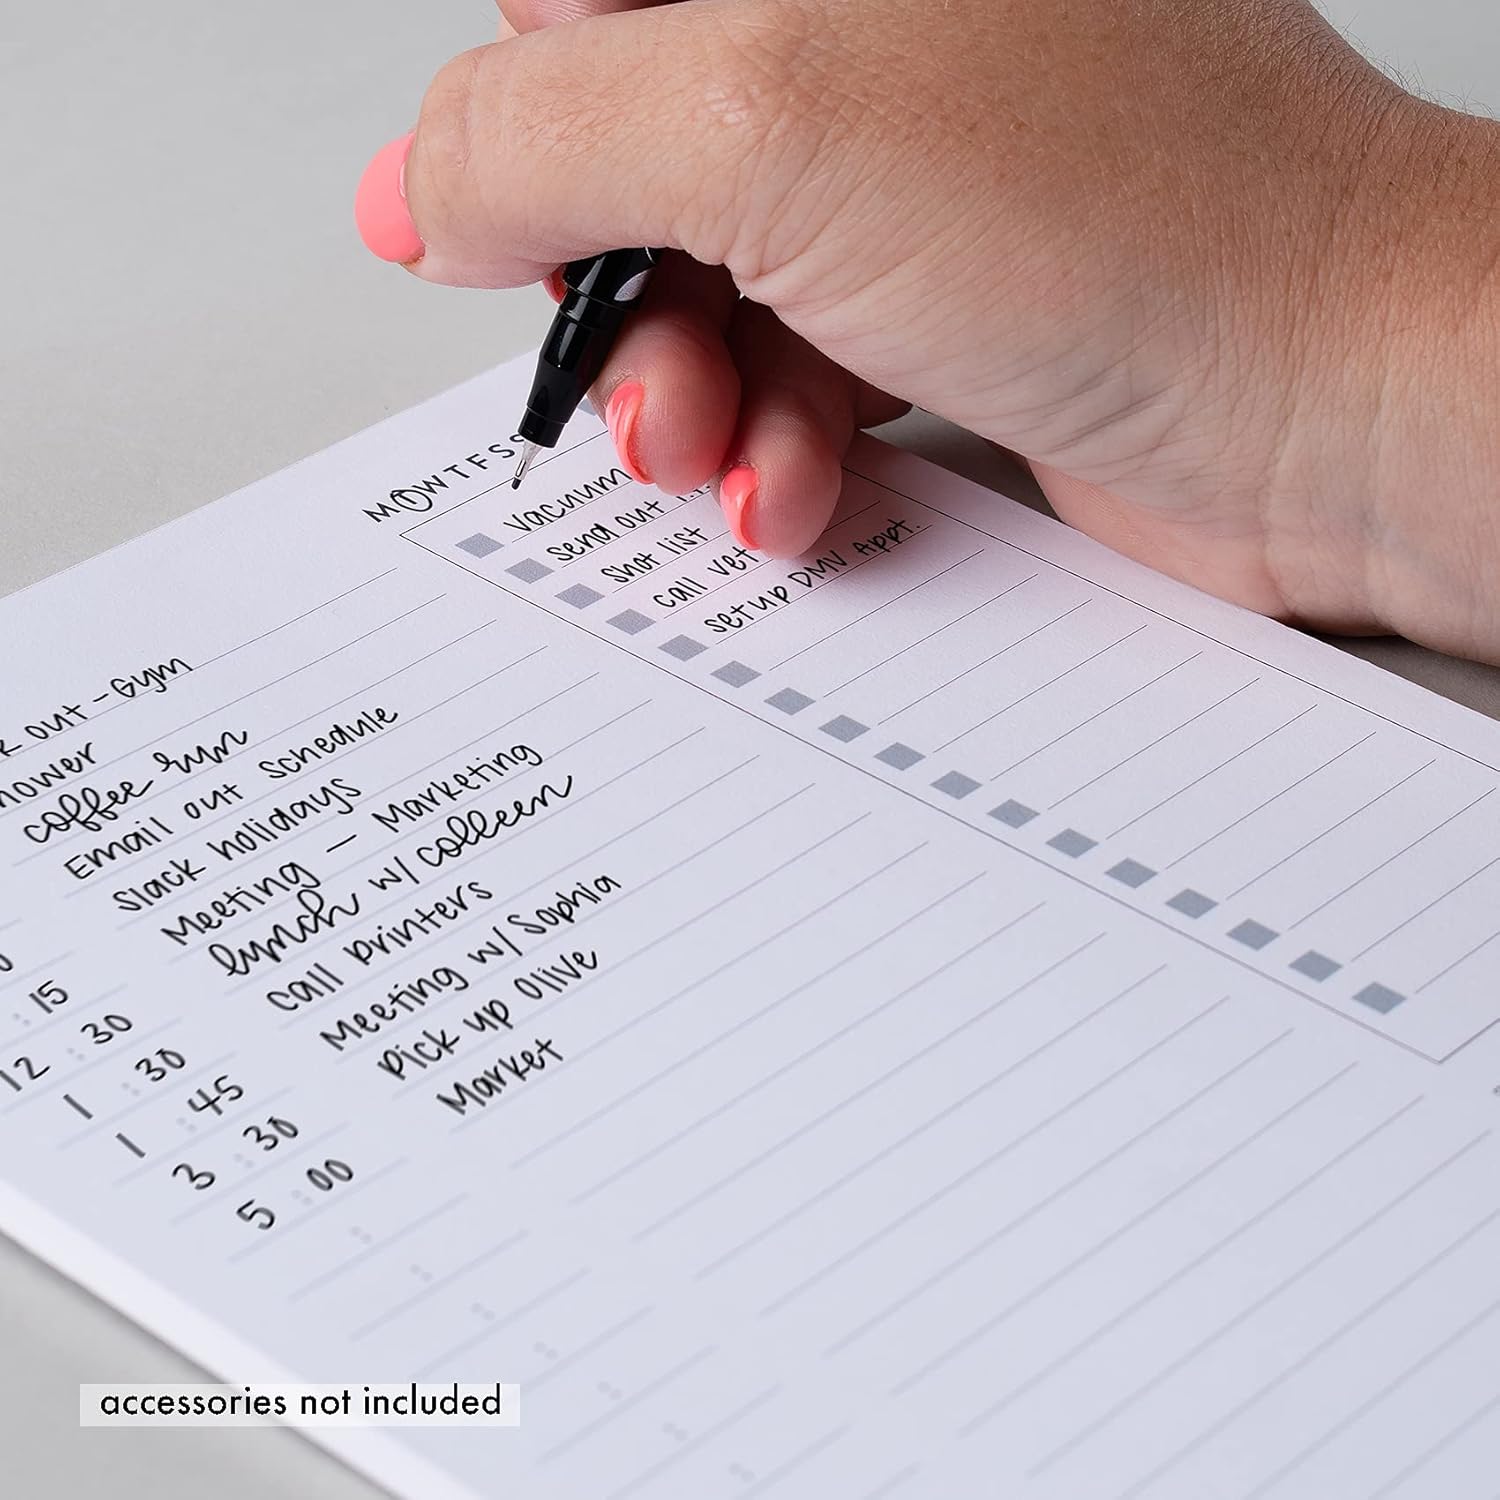 M T W T F S S
vacuum
send out
shot list
call vet
setup DMV Appt.
out - Gym
coffee run
Email out schedule
Slack holidays
Meeting - Marketing
lynch w/ colleen
call printers
Meeting w/ Sophia
Pick up Olive
Market
:15
12:30
1:30
1:45
3:30
5:00
accessories not included